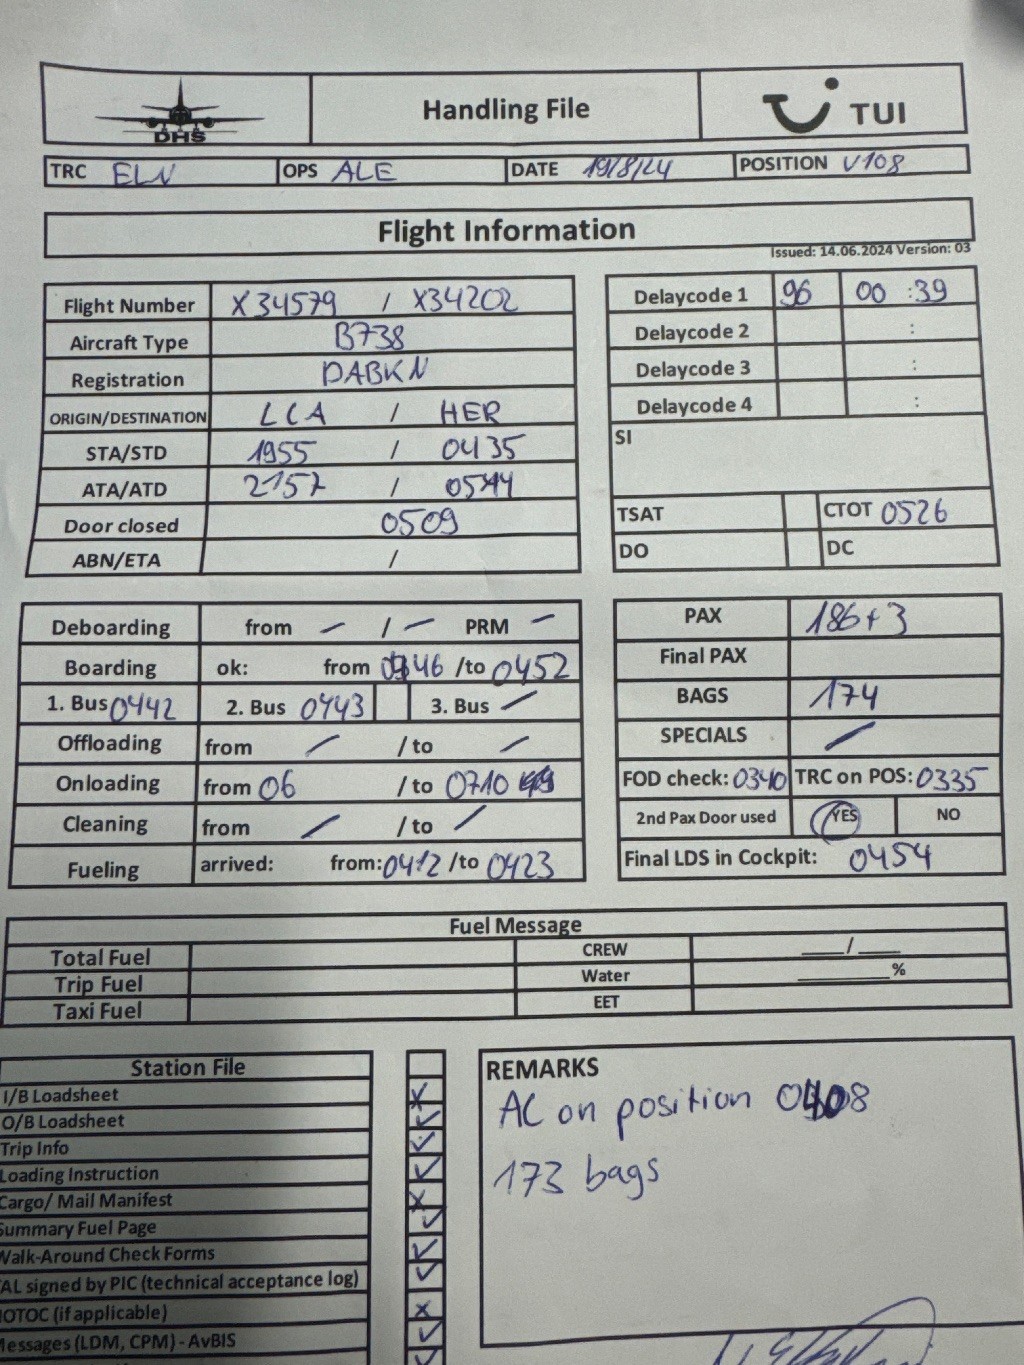 DHS
Handling File
TUI
TRC ELN OPS ALE DATE 19/8/24 POSITION V108
Flight Information
Issued: 14.06.2024 Version: 03
Flight Number X34579 / X34202
Aircraft Type B738
Registration DABKN
ORIGIN/DESTINATION LCA / HER
STA/STD 1955 / 0435
ATA/ATD 2157 / 0544
Door closed 0509
ABN/ETA /
Delaycode 1 96 00 :39
Delaycode 2 :
Delaycode 3 :
Delaycode 4 :
SI
TSAT CTOT 0526
DO DC
Deboarding from – / – PRM –
Boarding ok: from /to 0452
1. Bus 0442 2. Bus 0443 3. Bus /
Offloading from / /to /
Onloading from 06 /to 0710
Cleaning from / /to /
Fueling arrived: from: 0412 /to 0423
PAX 186+3
Final PAX
BAGS 174
SPECIALS /
FOD check: 0340 TRC on POS: 0335
2nd Pax Door used YES NO
Final LDS in Cockpit: 0454
Fuel Message
Total Fuel CREW ____/____
Trip Fuel Water ________%
Taxi Fuel EET
Station File
I/B Loadsheet x
O/B Loadsheet ✓
Trip Info ✓
Loading Instruction ✓
Cargo/ Mail Manifest x
Summary Fuel Page ✓
Walk-Around Check Forms ✓
AL signed by PIC (technical acceptance log) ✓
NOTOC (if applicable) x
Messages (LDM, CPM) - AvBIS ✓
REMARKS
AC on position 0408
173 bags